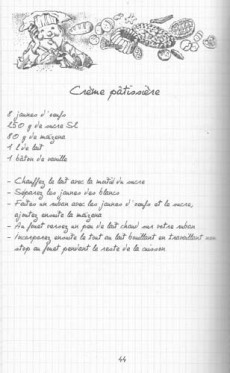 Crème pâtissière
8 jaunes d'oeufs
250 g de sucre SL
80 g de maïzena
1 l de lait
1 bâton de vanille
- Chauffez le lait avec la moitié du sucre
- Séparez les jaunes des blancs
- Faites un ruban avec les jaunes d'oeufs et le sucre,
ajoutez ensuite la maïzena
- Au fouet versez un peu de lait chaud sur votre ruban
- Incorporez ensuite le tout au lait bouillant en travaillant non
stop au fouet pendant le reste de la cuisson
44